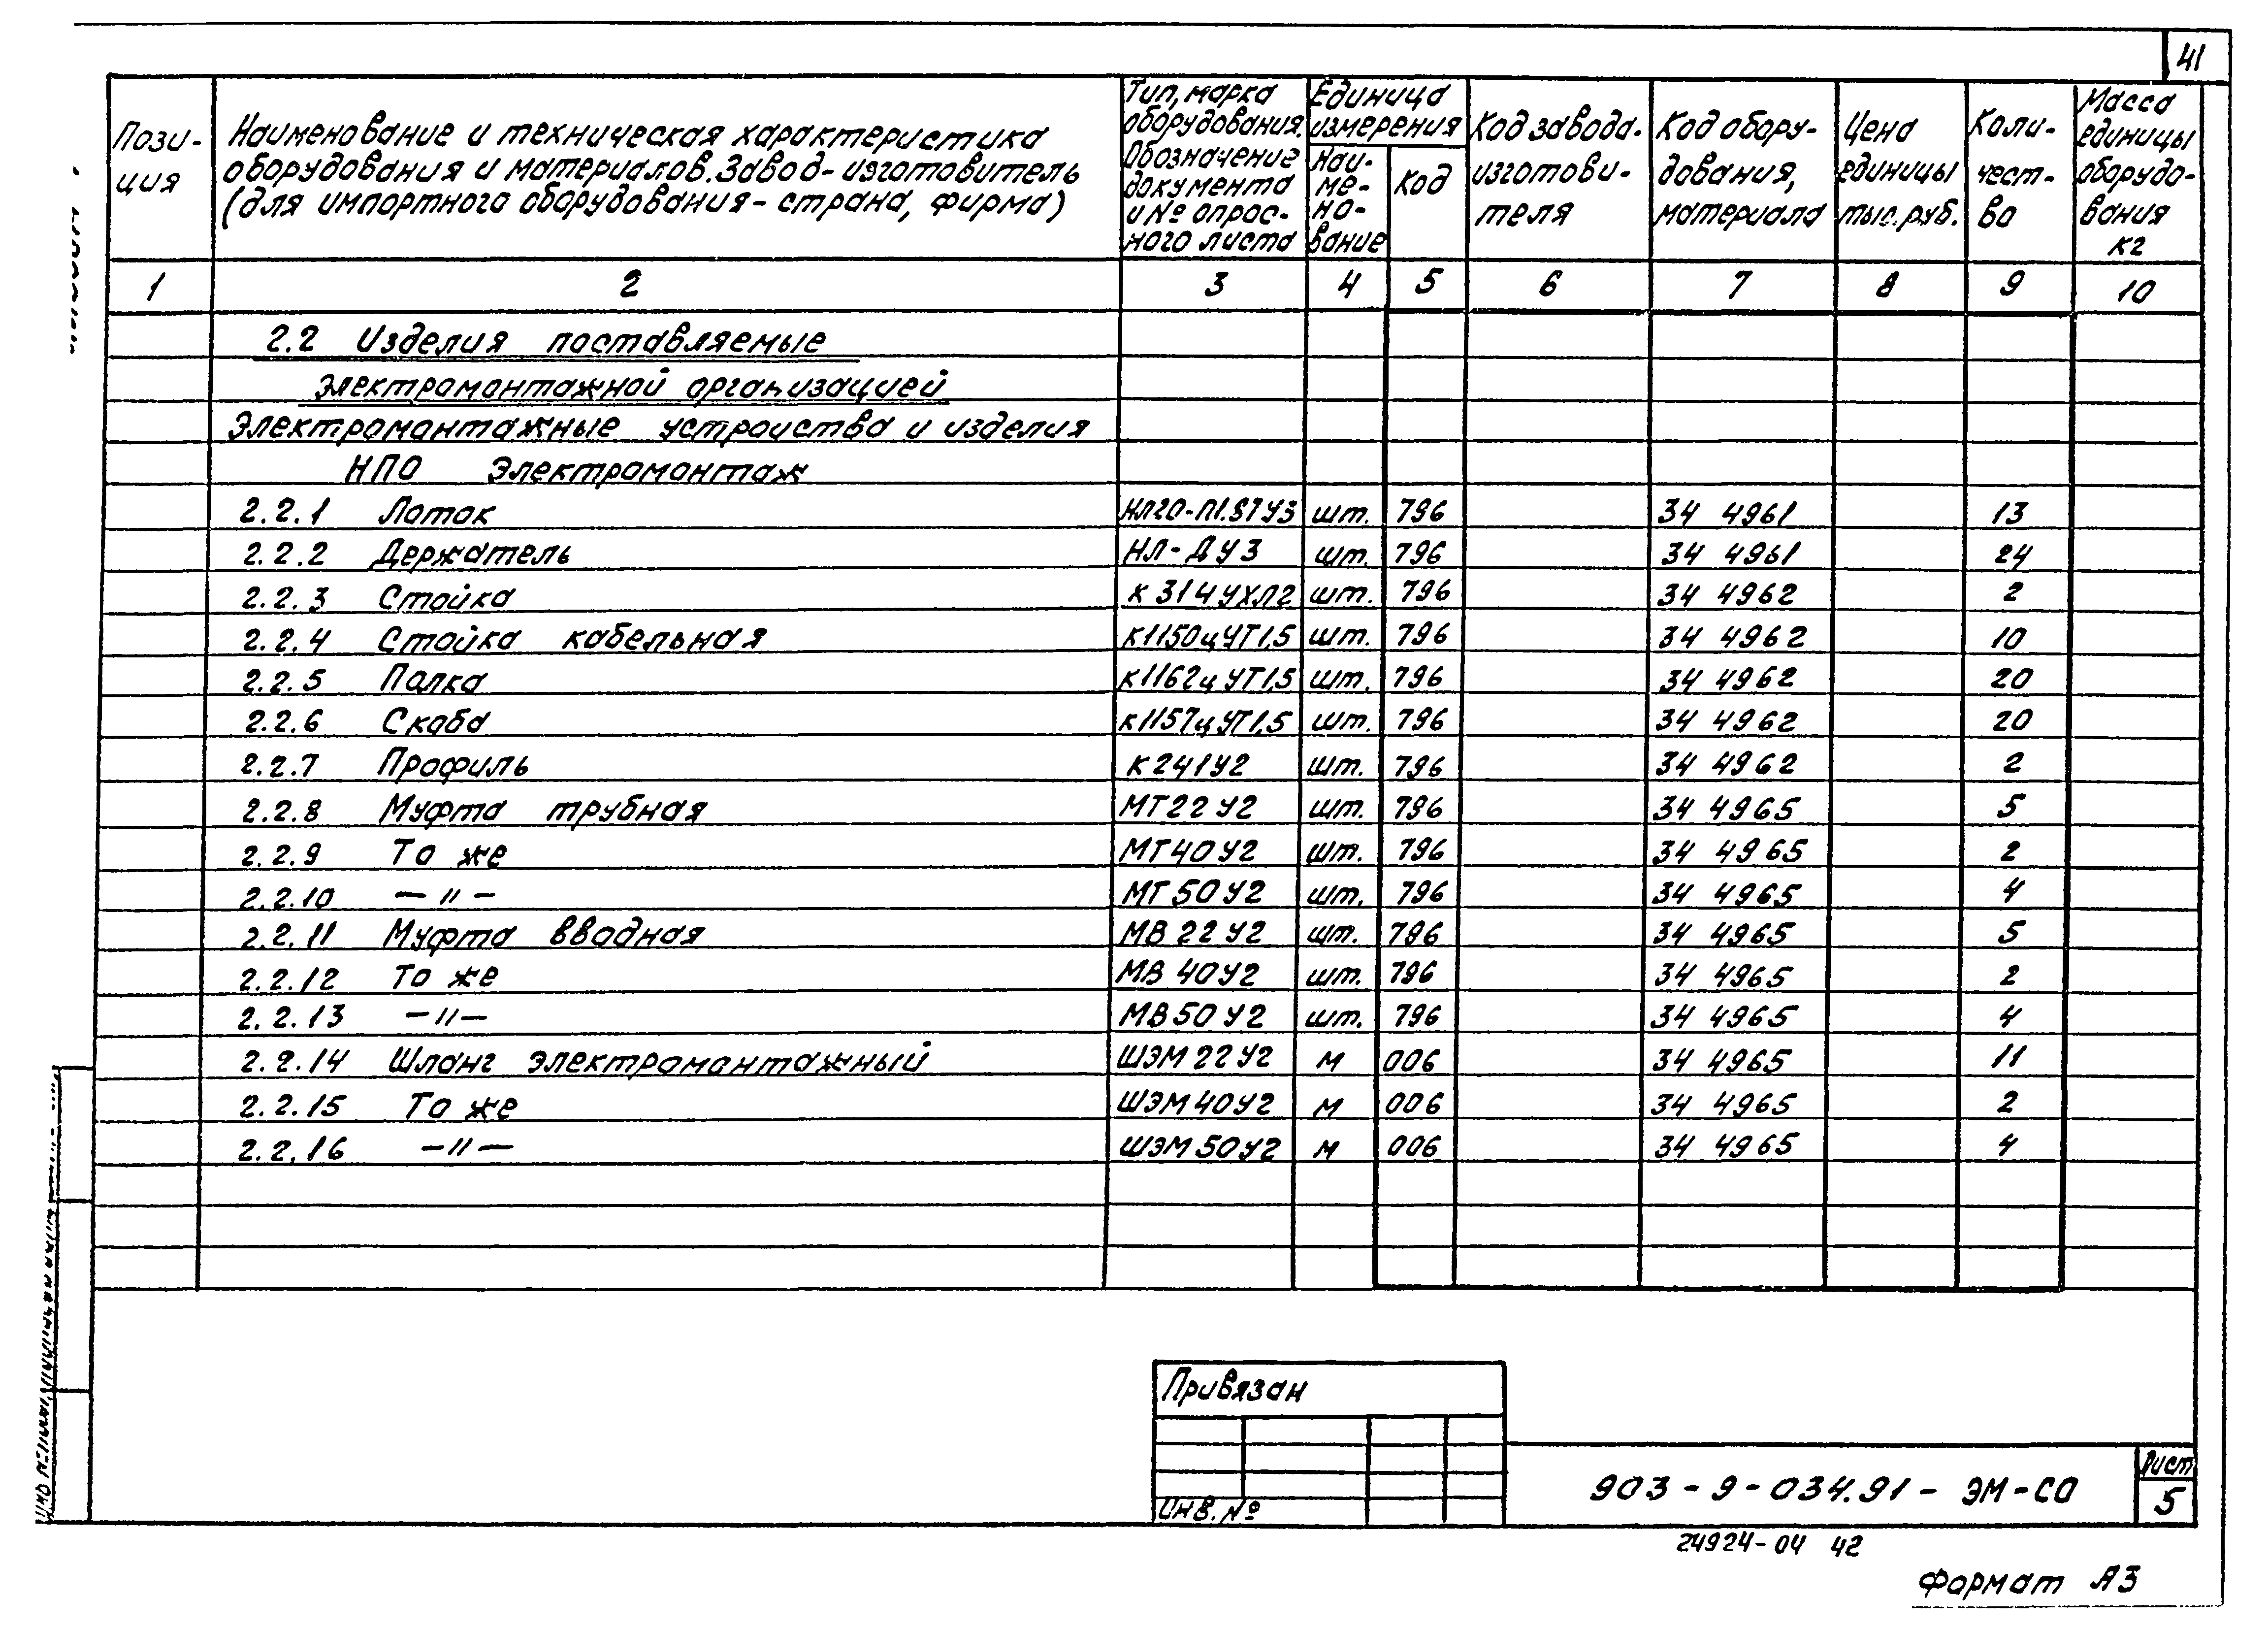 41
Пози-
ция
Наименование и техническая характеристика
оборудования и материалов. Завод-изготовитель
(для импортного оборудования - страна, фирма)
Тип, марка
оборудования.
Обозначение
документа
и № опрос-
ного листа
Единица
измерения
Наи-
ме-
но-
вание
Код
Код завода-
изготови-
теля
Код обору-
дования,
материала
Цена
единицы
тыс.руб.
Коли-
чест-
во
Масса
единицы
оборудо-
вания
кг
1 2 3 4 5 6 7 8 9 10
2.2 Изделия поставляемые
электромонтажной организацией
Электромонтажные устройства и изделия
НПО Электромонтаж
2.2.1 Лоток НЛ20-П1.87У3 шт. 796 34 4961 13
2.2.2 Держатель НЛ-ДУ3 шт. 796 34 4961 24
2.2.3 Стойка К314УХЛ2 шт. 796 34 4962 2
2.2.4 Стойка кабельная К1150цУТ1,5 шт. 796 34 4962 10
2.2.5 Полка К1162цУТ1,5 шт. 796 34 4962 20
2.2.6 Скоба К1157цУТ1,5 шт. 796 34 4962 20
2.2.7 Профиль К241У2 шт. 796 34 4962 2
2.2.8 Муфта трубная МТ22У2 шт. 796 34 4965 5
2.2.9 То же МТ40У2 шт. 796 34 4965 2
2.2.10 —"— МТ50У2 шт. 796 34 4965 4
2.2.11 Муфта вводная МВ22У2 шт. 796 34 4965 5
2.2.12 То же МВ40У2 шт. 796 34 4965 2
2.2.13 —"— МВ50У2 шт. 796 34 4965 4
2.2.14 Шланг электромонтажный ШЭМ22У2 м 006 34 4965 11
2.2.15 То же ШЭМ40У2 м 006 34 4965 2
2.2.16 —"— ШЭМ50У2 м 006 34 4965 4
Привязан
Инв. №
903-9-034.91-ЭМ-СО
Лист
5
24924-04 42
Формат А3